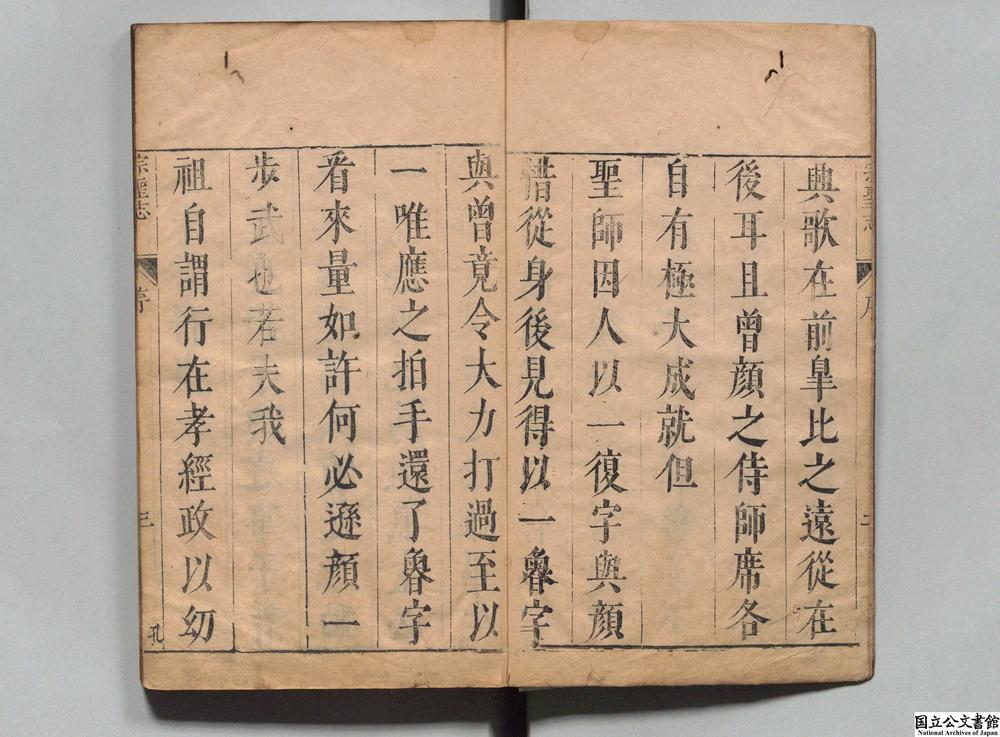 典歌在前臯比之遠從在
後耳且曾顔之侍師席各
自有極大成就但
聖師因人以一復字與顔
惜從身後見得以一魯字
與曾竟令大力打過至以
一唯應之拍手還了魯字
看來量如許何必遜顔一
步武也若夫我
祖自謂行在孝經政以幼
宗聖志
序
三
孔
国立公文書館
National Archives of Japan